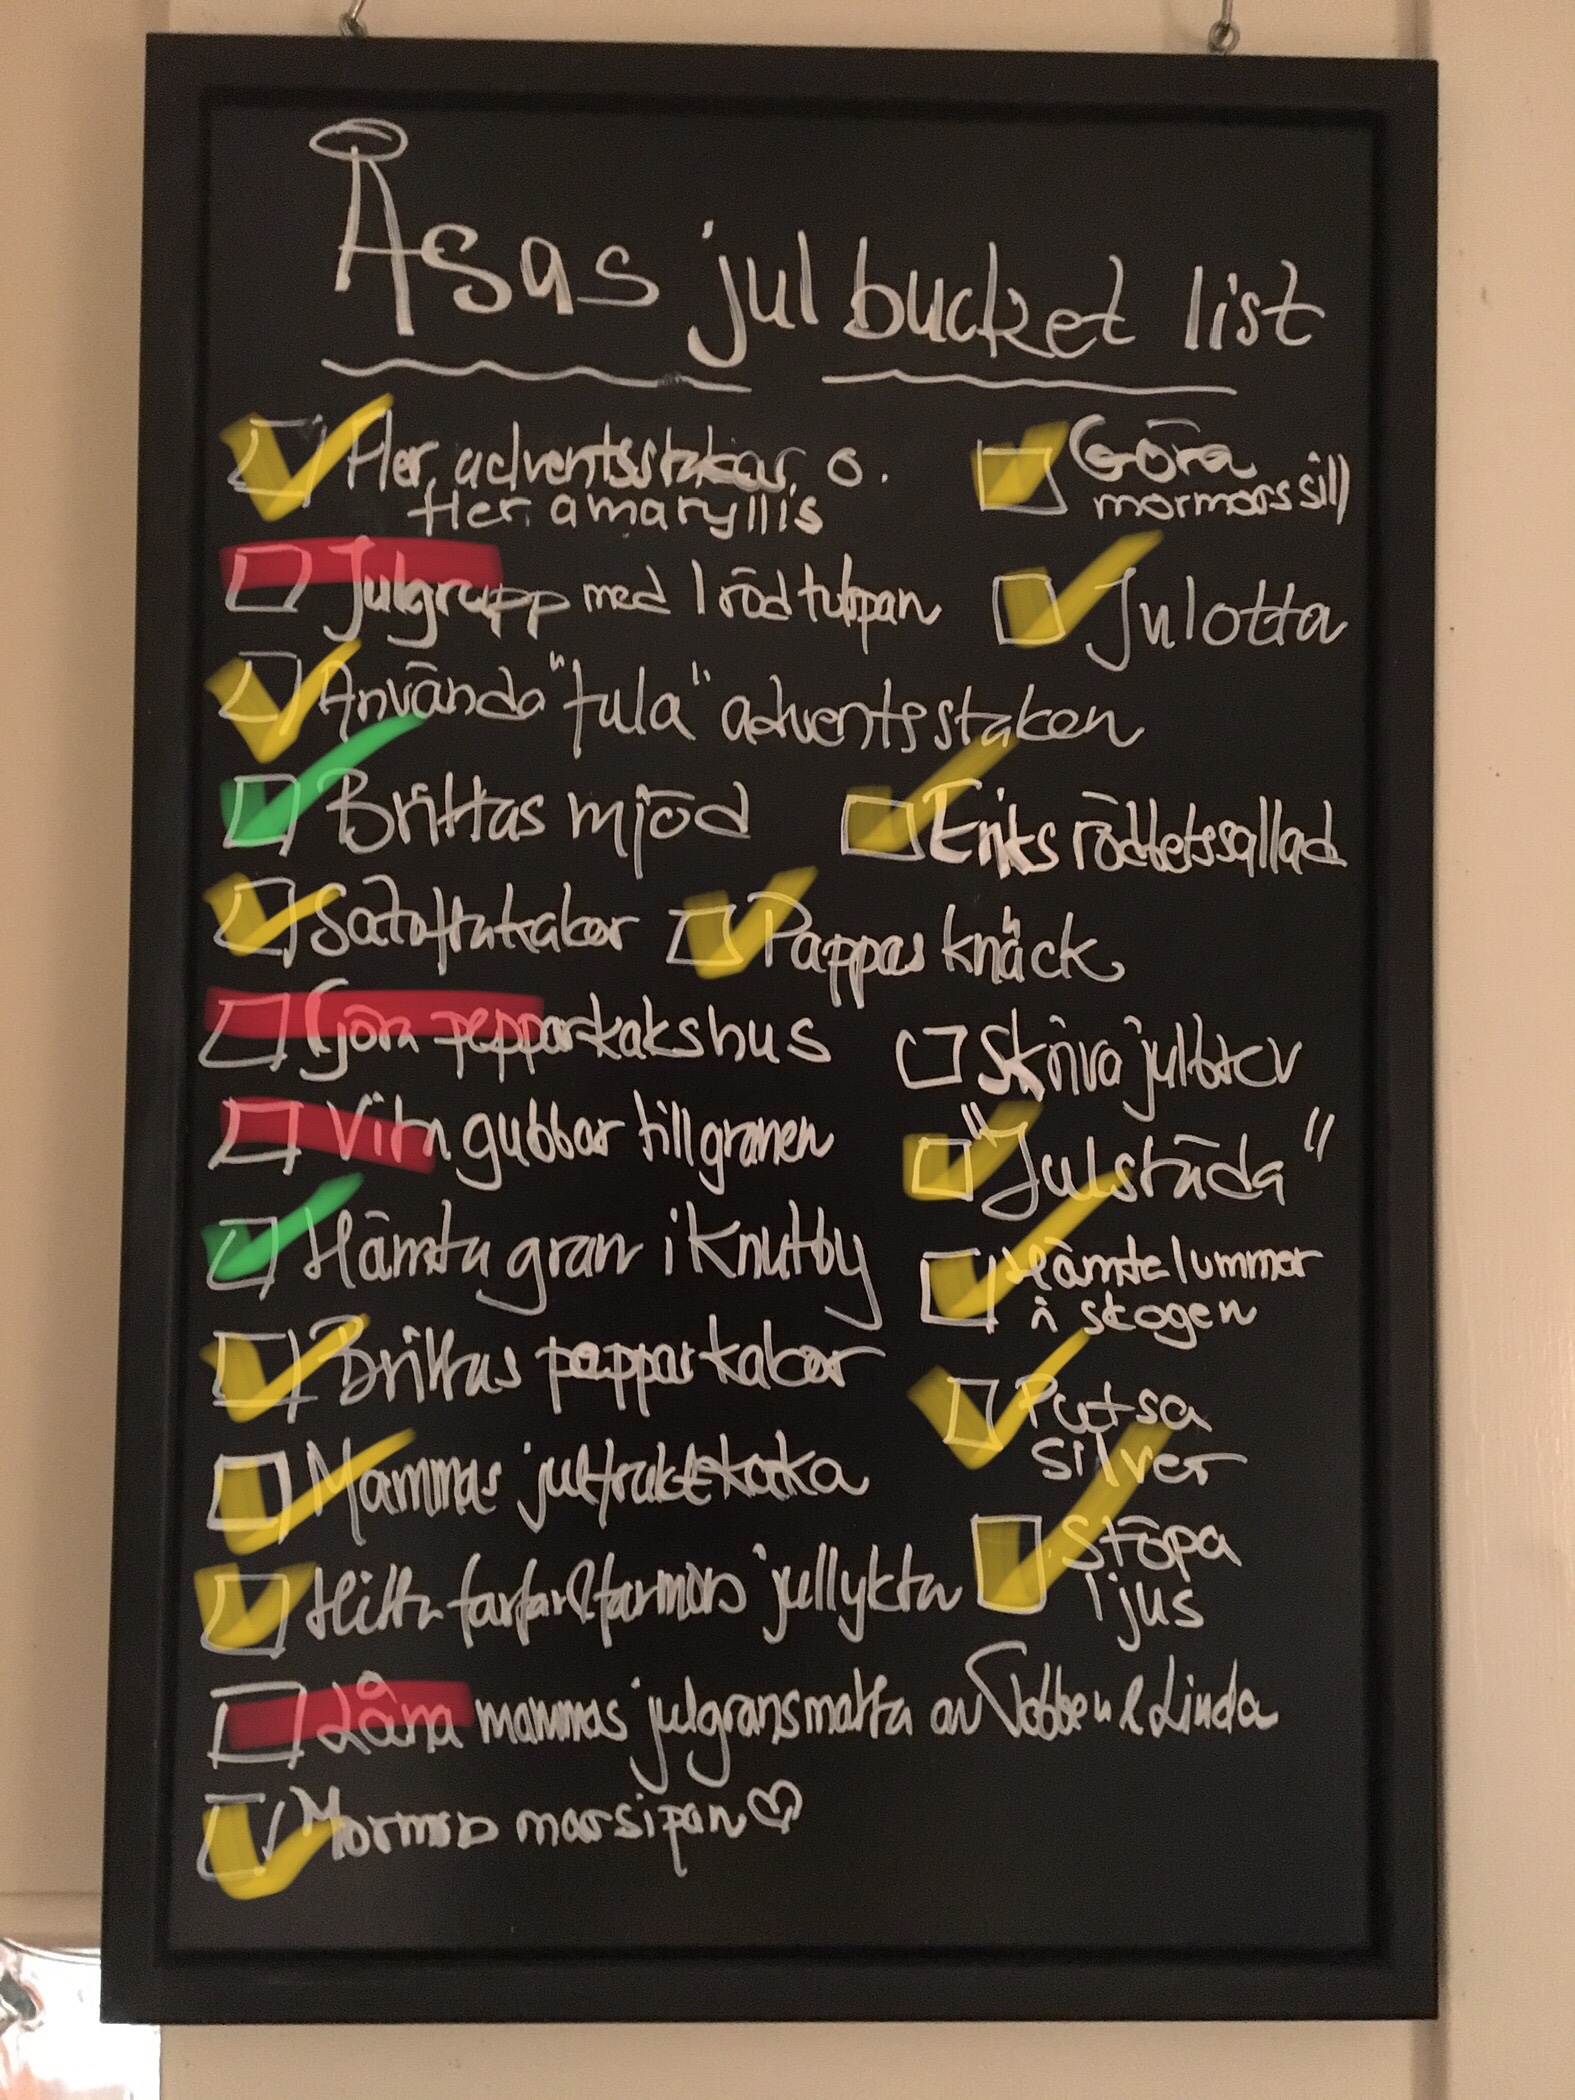 Åsas jul bucket list
Fler adventsstakar o.
fler amaryllis
Göra
mormors sill
Julgrupp med 1 röd tulpan
Julotta
Använda "fula" adventsstaken
Brittas mjöd
Eriks rödbetssallad
Satoftakakor
Pappas knäck
Göra pepparkakshus
Skriva julbrev
Virka gubbar till granen
"Julstäda"
Hämta gran i Knutby
Hämta lummer
i skogen
Brittas pepparkakor
Putsa
silver
Mammas julfruktkaka
Stöpa
ljus
Hitta farfar & farmors jullykta
Låna mammas julgransmatta av Tobben & Linda
Mormors marsipan ♡